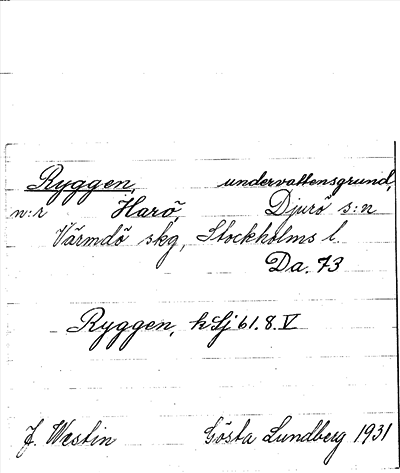 Ryggen, undervattensgrund,
n:r Harö, Djurö s:n
Värmdö skg, Stockholms l.
Da. 73
Ryggen, hSj 61.8.V
J. Westin Gösta Lundberg 1931